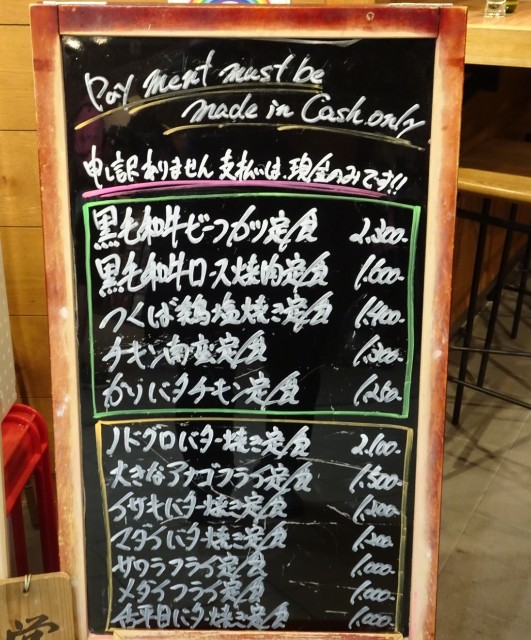 Payment must be
made in Cash only
申し訳ありません 支払いは、現金のみです!!
黒毛和牛ビーフカツ定食 2,300-
黒毛和牛ロース焼肉定食 1,600-
つくば鶏塩焼き定食 1,400-
チキン南蛮定食 1,300-
かりバタチキン定食 1,250-
ノドグロバター焼き定食 2,100-
大きなアナゴフライ定食 1,500-
イサキバター焼き定食
マダイバター焼き定食
サワラフライ定食 1,000-
メダイフライ定食 1,000-
舌平目バター焼き定食 1,000-